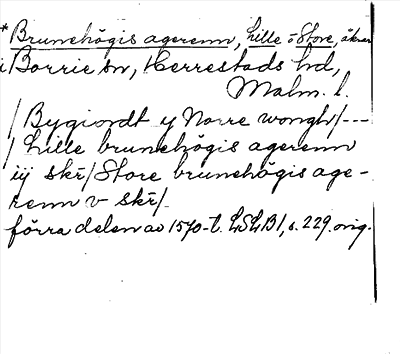 *Brunehögis agerenn, Lille o Store, åkrar
i Borrie sn, Herrestads hd,
Malm. l.
/Bygiordt y Norre wongh/---
/Lille brunehögis agerenn
iij skr̄/Store brunehögis age-
renn v skr̄/.
förra delen av 1570-t. LSLB1, s. 229. orig.